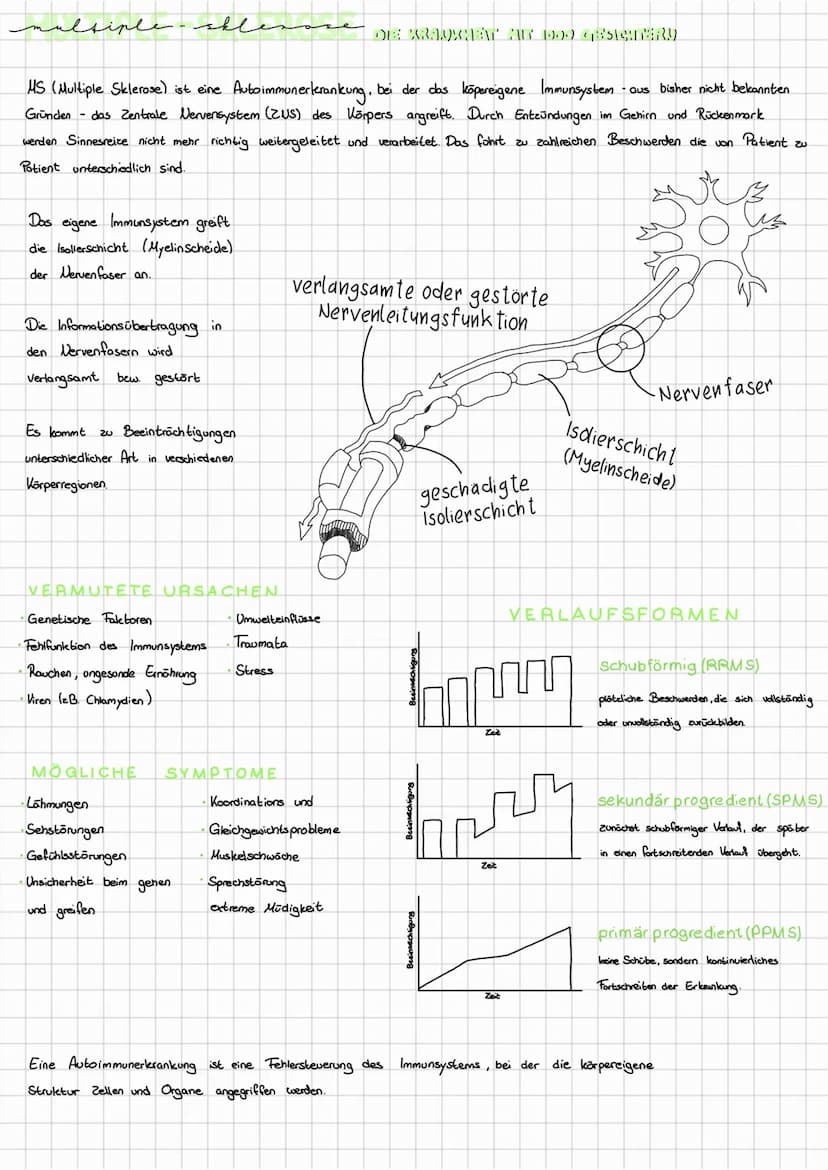 multiple - sklerose DIE KRANKHEIT MIT 1000 GESICHTERN
MS (Multiple Sklerose) ist eine Autoimmunerkrankung, bei der das köpereigene Immunsystem - aus bisher nicht bekannten
Gründen - das Zentrale Nervensystem (ZNS) des Körpers angreift. Durch Entzündungen im Gehirn und Rückenmark
werden Sinnesreize nicht mehr richtig weitergeleitet und verarbeitet. Das führt zu zahlreichen Beschwerden die von Patient zu
Patient unterschiedlich sind.
Das eigene Immunsystem greift
die Isolierschicht (Myelinscheide)
der Nervenfaser an.
Die Informationsübertragung in
den Nervenfasern wird
verlangsamt bzw. gestört
Es kommt zu Beeinträchtigungen
unterschiedlicher Art in verschiedenen
Körperregionen.
verlangsamte oder gestörte
Nervenleitungsfunktion
Nervenfaser
Isolierschicht
(Myelinscheide)
geschädigte
Isolierschicht
VERMUTETE URSACHEN
· Genetische Faktoren
· Fehlfunktion des Immunsystems
· Rauchen, ungesunde Ernährung
· Viren (z.B. Chlamydien)
· Umwelteinflüsse
· Traumata
· Stress
MÖGLICHE SYMPTOME
· Lähmungen
· Sehstörungen
· Gefühlsstörungen
· Unsicherheit beim gehen
und greifen
· Koordinations und
· Gleichgewichtsprobleme
· Muskelschwäche
· Sprechstörung
extreme Müdigkeit
VERLAUFSFORMEN
Zeit
schubförmig (RRMS)
plötzliche Beschwerden, die sich vollständig
oder unvollständig zurückbilden.
Zeit
sekundär progredient (SPMS)
zunächst schubförmiger Verlauf, der später
in einen fortschreitenden Verlauf übergeht.
Zeit
primär progredient (PPMS)
keine Schübe, sondern kontinuierliches
Fortschreiten der Erkrankung.
Eine Autoimmunerkrankung ist eine Fehlersteuerung des Immunsystems, bei der die körpereigene
Struktur Zellen und Organe angegriffen werden.